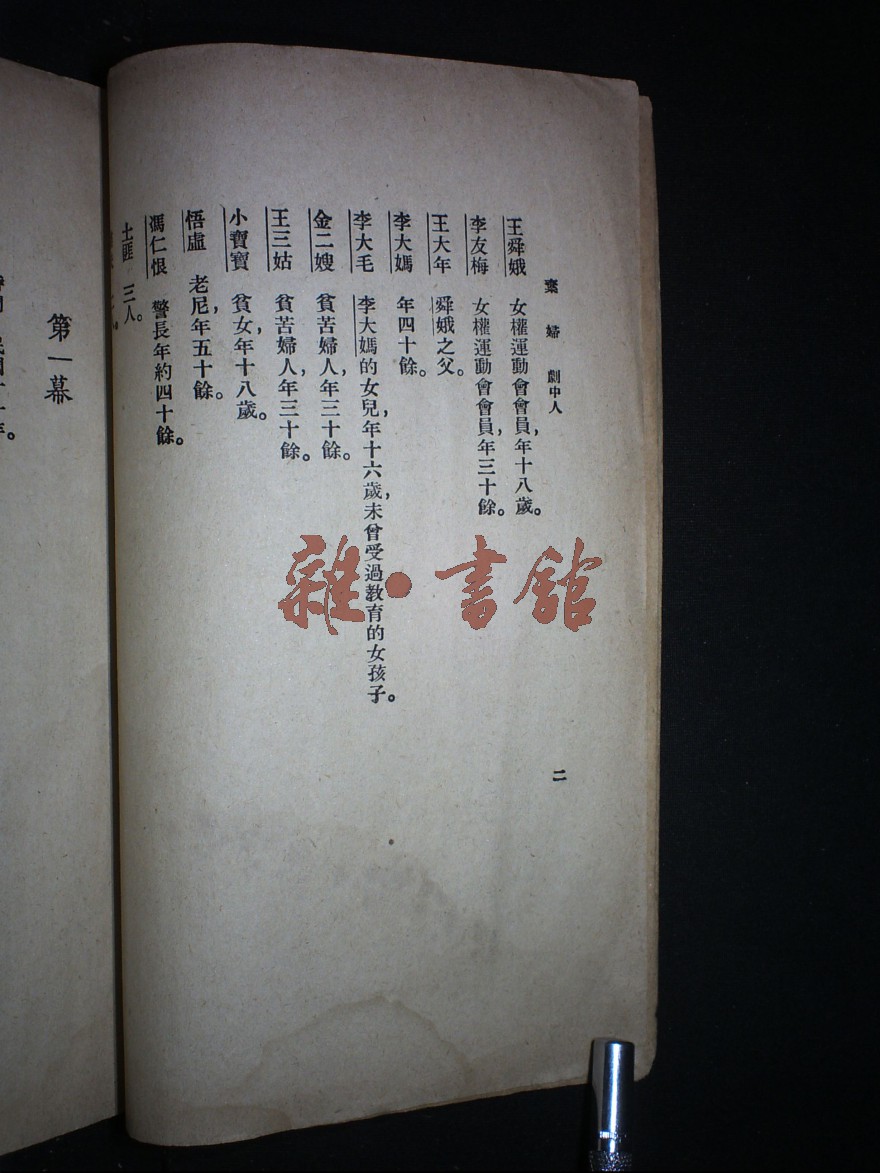 棄婦 劇中人
二
王舜娥 女權運動會會員,年十八歲。
李友梅 女權運動會會員,年三十餘。
王大年 舜娥之父。
李大媽 年四十餘。
李大毛 李大媽的女兒,年十六歲,未曾受過敎育的女孩子。
金二嫂 貧苦婦人,年三十餘。
王三姑 貧苦婦人,年三十餘。
小寶寶 貧女,年十八歲。
悟虛 老尼,年五十餘。
馮仁恨 警長年約四十餘。
土匪 三人。
第一幕
雜·書館